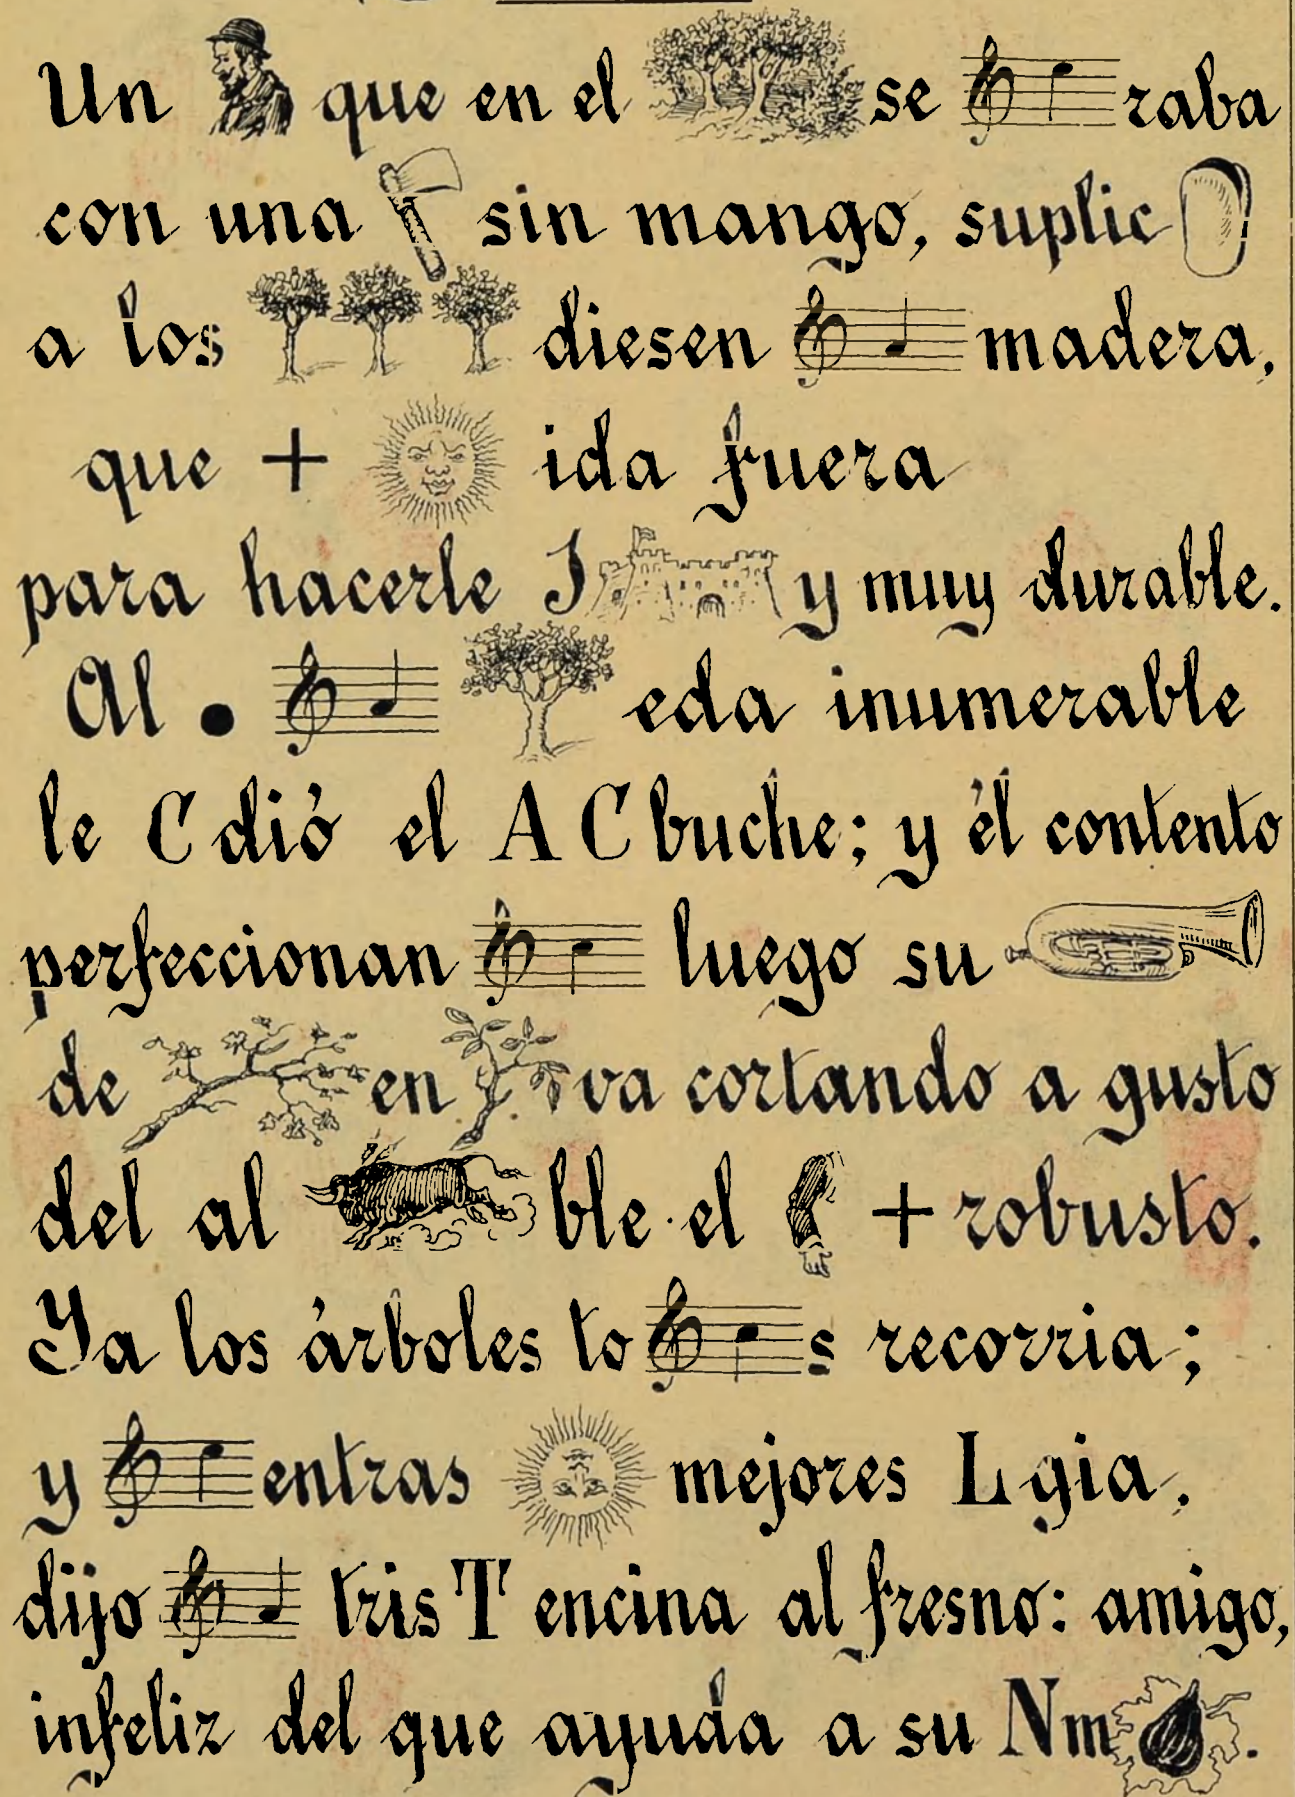 Un que en el se raba
con una sin mango, suplic
a los diesen madera,
que + ida fuera
para hacerle J y muy durable.
Al . eda inumerable
le C dió el A C buche; y él contento
perfeccionan luego su
de en va cortando a gusto
del al ble el + robusto.
Ya los árboles to s recorria;
y entras mejores L gia,
dijo tris T encina al fresno: amigo,
infeliz del que ayuda a su Nm .